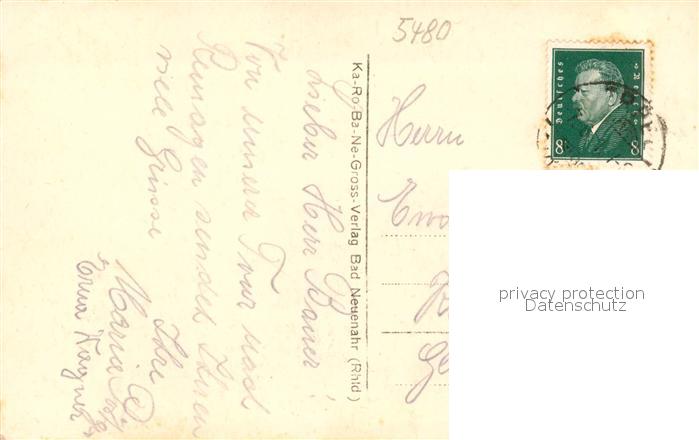 5480
Deutsches Reich
8 8
Herrn
Ewa
privacy protection
Datenschutz
Ka-Ro-Ba-Ne-Gross-Verlag Bad Neuenahr (Rhld)
Lieber Herr Bauer!
Von unserer Tour nach
Remagen sendet Ihnen
viele Grüsse
Ihre
Marie
Erna Wagner